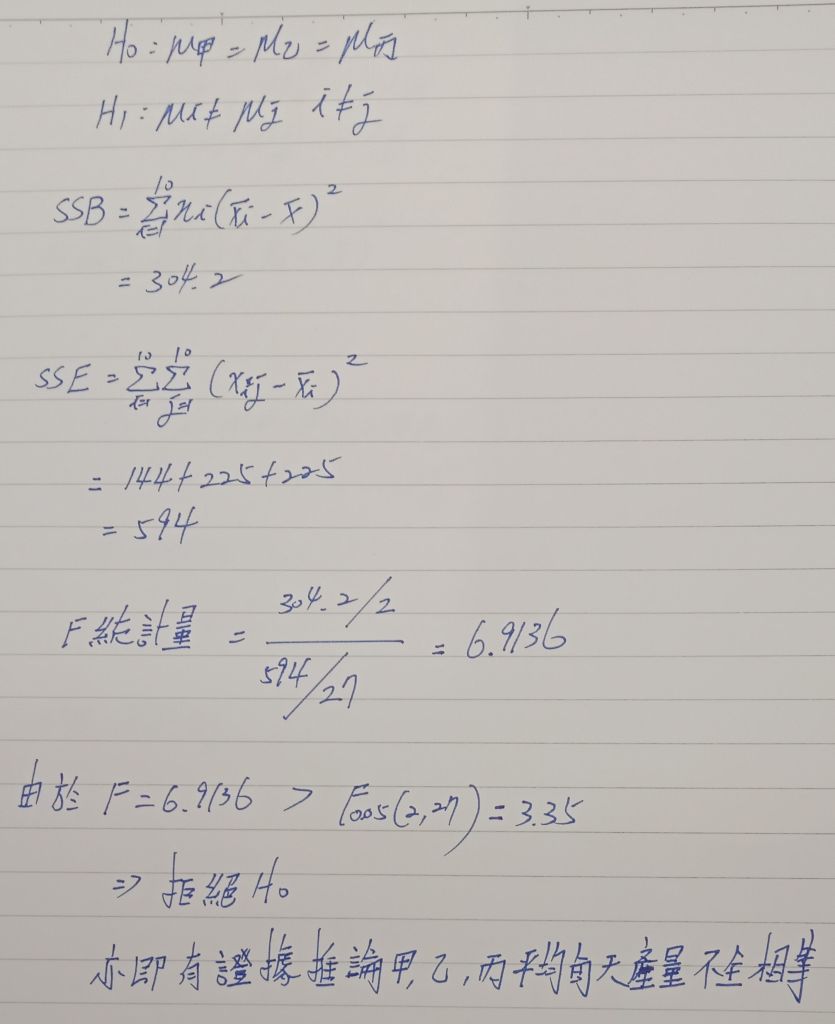 H₀ : μ甲 = μ乙 = μ丙
H₁ : μi ≠ μj i ≠ j
SSB = Σ_{i=1}^{10} ni(x̄i - x̄)²
= 304.2
SSE = Σ_{i=1}^{10} Σ_{j=1}^{10} (xij - x̄i)²
= 144 + 225 + 225
= 594
F 統計量 = (304.2/2) / (594/27) = 6.9136
由於 F = 6.9136 > F0.05(2,27) = 3.35
⇒ 拒絕 H₀
亦即有證據推論甲,乙,丙平均每天產量不全相等